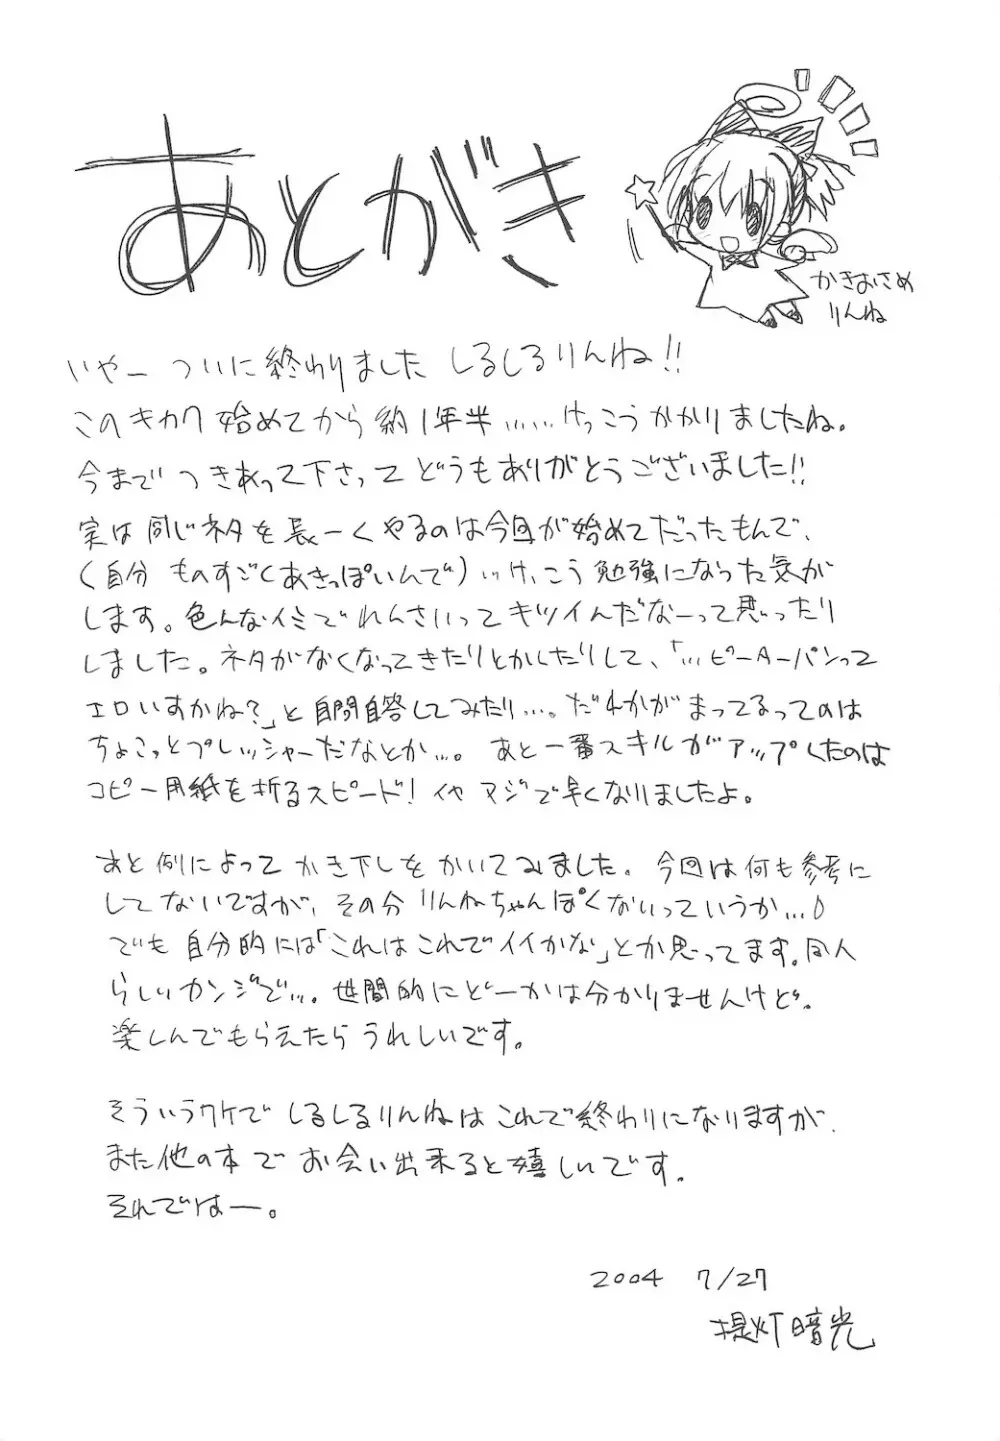 あとがき
かきおさめ
りんね
いやー ついに終わりました しるしるりんね!!
このキカク始めてから約1年半……けっこうかかりましたね。
今まで つきあって下さって どうもありがとうございました!!
実は同じネタを長ーくやるのは今回が始めてだったもんで、
(自分 ものすごくあきっぽいんで)…けっこう勉強になった気が
します。色んなイミでれんさいってキツイんだなーって思ったり
しました。ネタがなくなってきたりとかしたりして、「…ピーターパンって
エロいすかね?」と自問自答してみたり…。だれかがまってるってのは
ちょこっとプレッシャーだなとか…。 あと一番スキルがアップしたのは
コピー用紙を折るスピード! イヤ マジで早くなりましたよ。
あと例によって かき下しを かいてみました。今回は何も参考に
してないですが、その分りんねちゃんぽくないっていうか…
でも自分的には「これはこれでイイかな」とか思ってます。同人
らしいカンジで…。世間的にどーかは分かりませんけど。
楽しんでもらえたらうれしいです。
そういうワケで しるしるりんねはこれで終わりになりますが、
また他の本で お会い出来ると嬉しいです。
それではー。
2004 7/27
提灯暗光